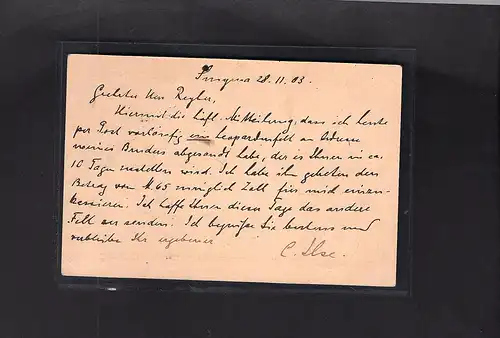 28.11.03.
Geehrter Herr Regler,
Hiermit die höfl. Mitteilung, dass ich heute
per Post vorläufig ein Leopardenfell an Adresse
meines Bruders abgesandt habe, der es Ihnen in ca.
10 Tagen zustellen wird. Ich habe ihn gebeten den
Betrag von M. 65 zuzüglich Zoll für mich einzu-
kassieren. Ich hoffe Ihnen dieser Tage das andere
Fell zu senden. Ich begrüße Sie bestens und
verbleibe Ihr ergebener
C. Ilse.